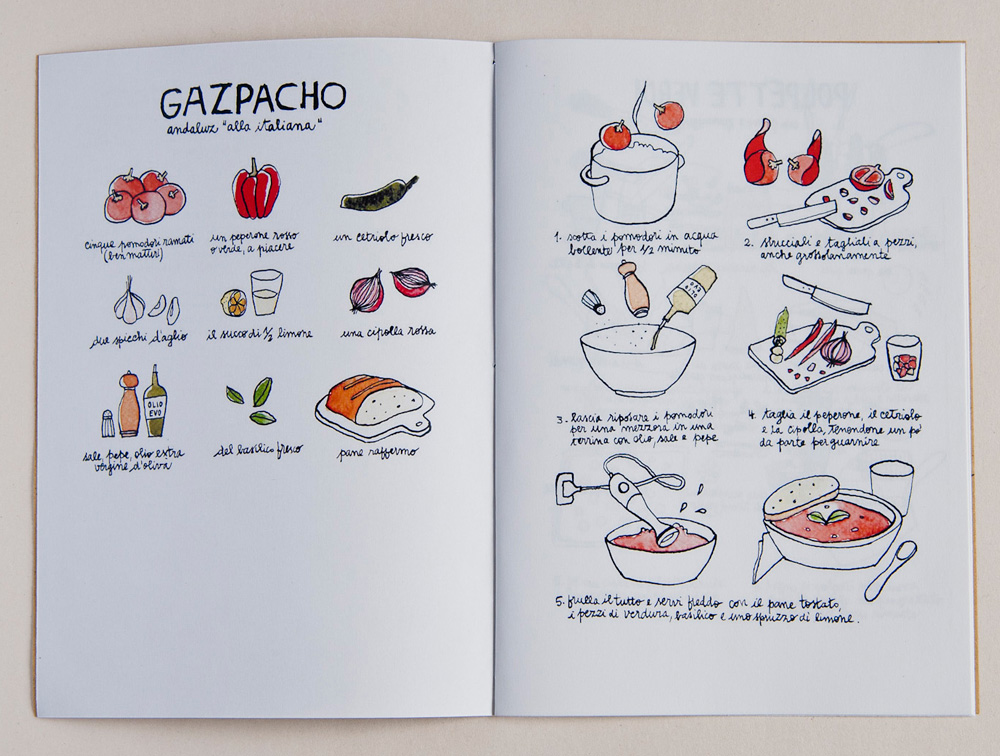 GAZPACHO
andaluz "alla italiana"
cinque pomodori ramati
(ben maturi)
un peperone rosso
o verde, a piacere
un cetriolo fresco
due spicchi d'aglio
il succo di ½ limone
una cipolla rossa
OLIO
EVO
sale, pepe, olio extra
vergine d'oliva
del basilico fresco
pane raffermo
1. scotta i pomodori in acqua
bollente per 1/2 minuto
2. sbucciali e tagliali a pezzi,
anche grossolanamente
3. lascia riposare i pomodori
per una mezzora in una
terrina con olio, sale e pepe
4. taglia il peperone, il cetriolo
e la cipolla, tenendone un po'
da parte per guarnire
5. frulla il tutto e servi freddo con il pane tostato,
i pezzi di verdura, basilico e uno spruzzo di limone.